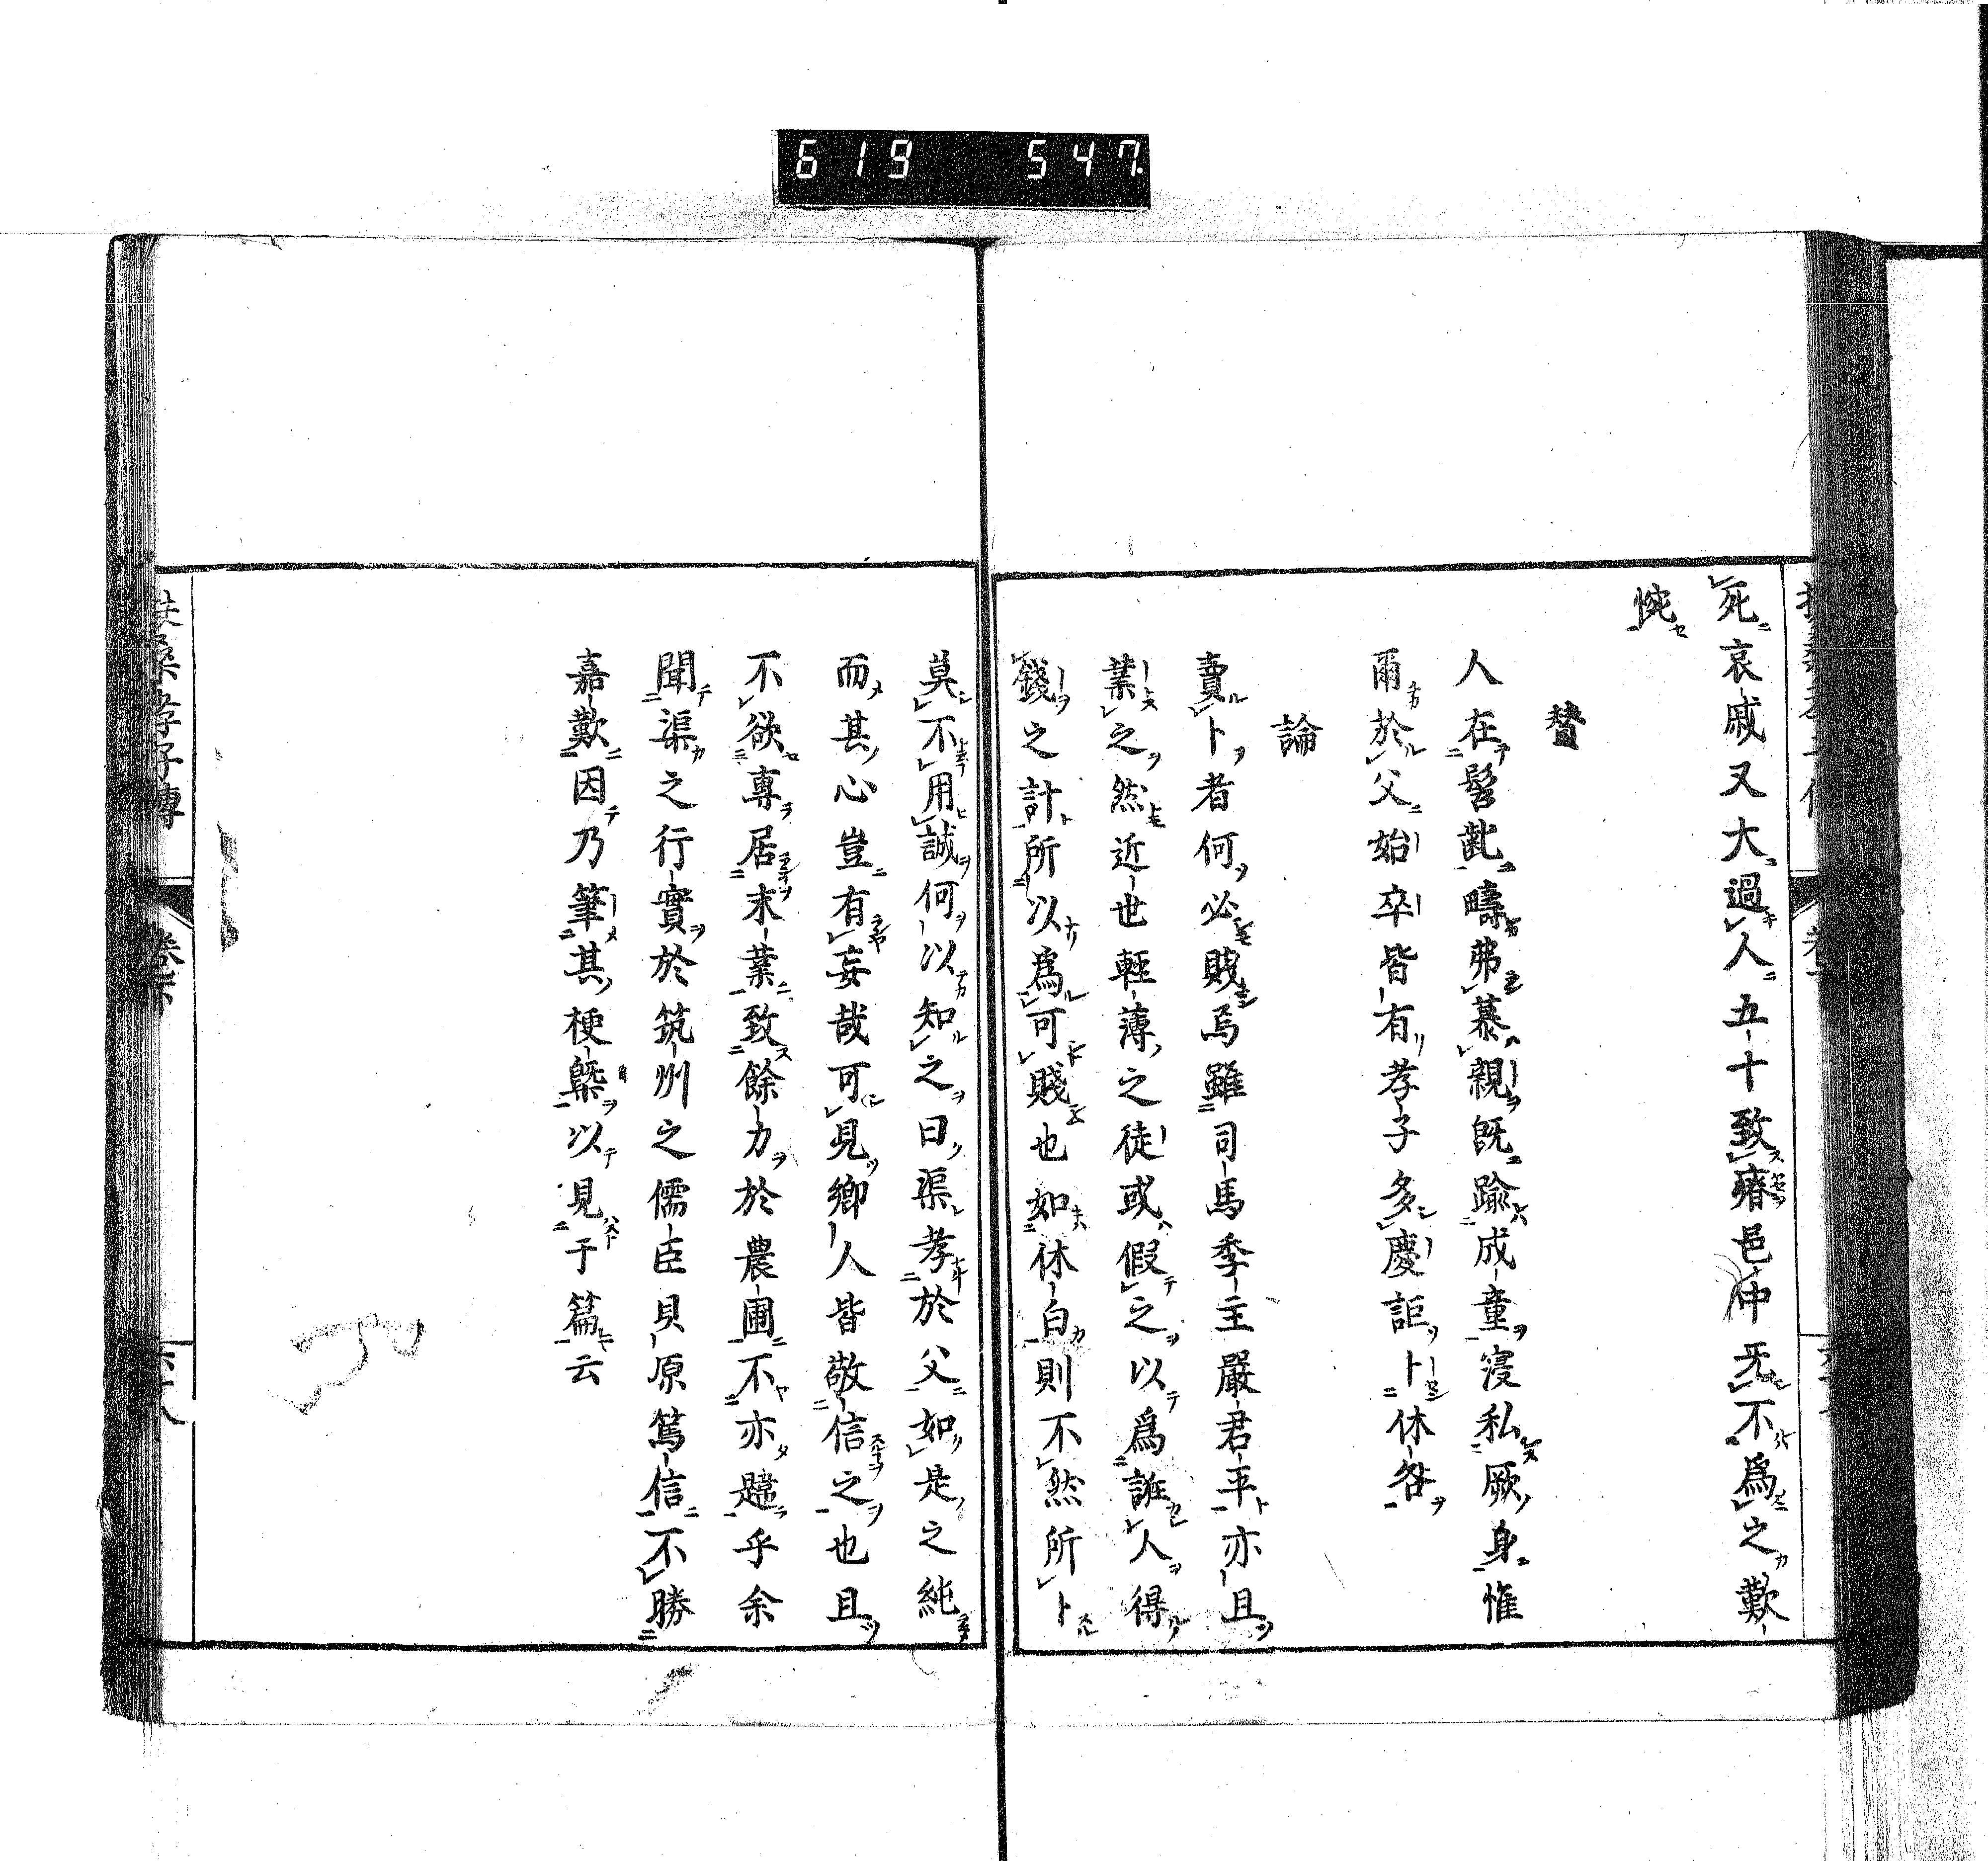 619 547.
死哀戚又大過人五十致瘠邑仲旡不爲之歎
惋
賛
人在髫齔疇弗慕親既踰成童寖私厥身惟
爾於父始卒皆有孝子多慶詎卜休咎
論
賣卜者何必賤焉雖司馬季主嚴君平亦且
業之然近世輕薄之徒或假之以爲誑人得
錢之計所以爲可賤也如休白則不然所卜
莫不用誠何以知之曰渠孝於父如是之純
而其心豈有妄哉可見鄉人皆敬信之也且
不欲專居末業致餘力於農圃不亦韙乎余
聞渠之行實於筑州之儒臣貝原篤信不勝
嘉歎因乃筆其梗槩以見于篇云
扶桑孝子傳 卷下